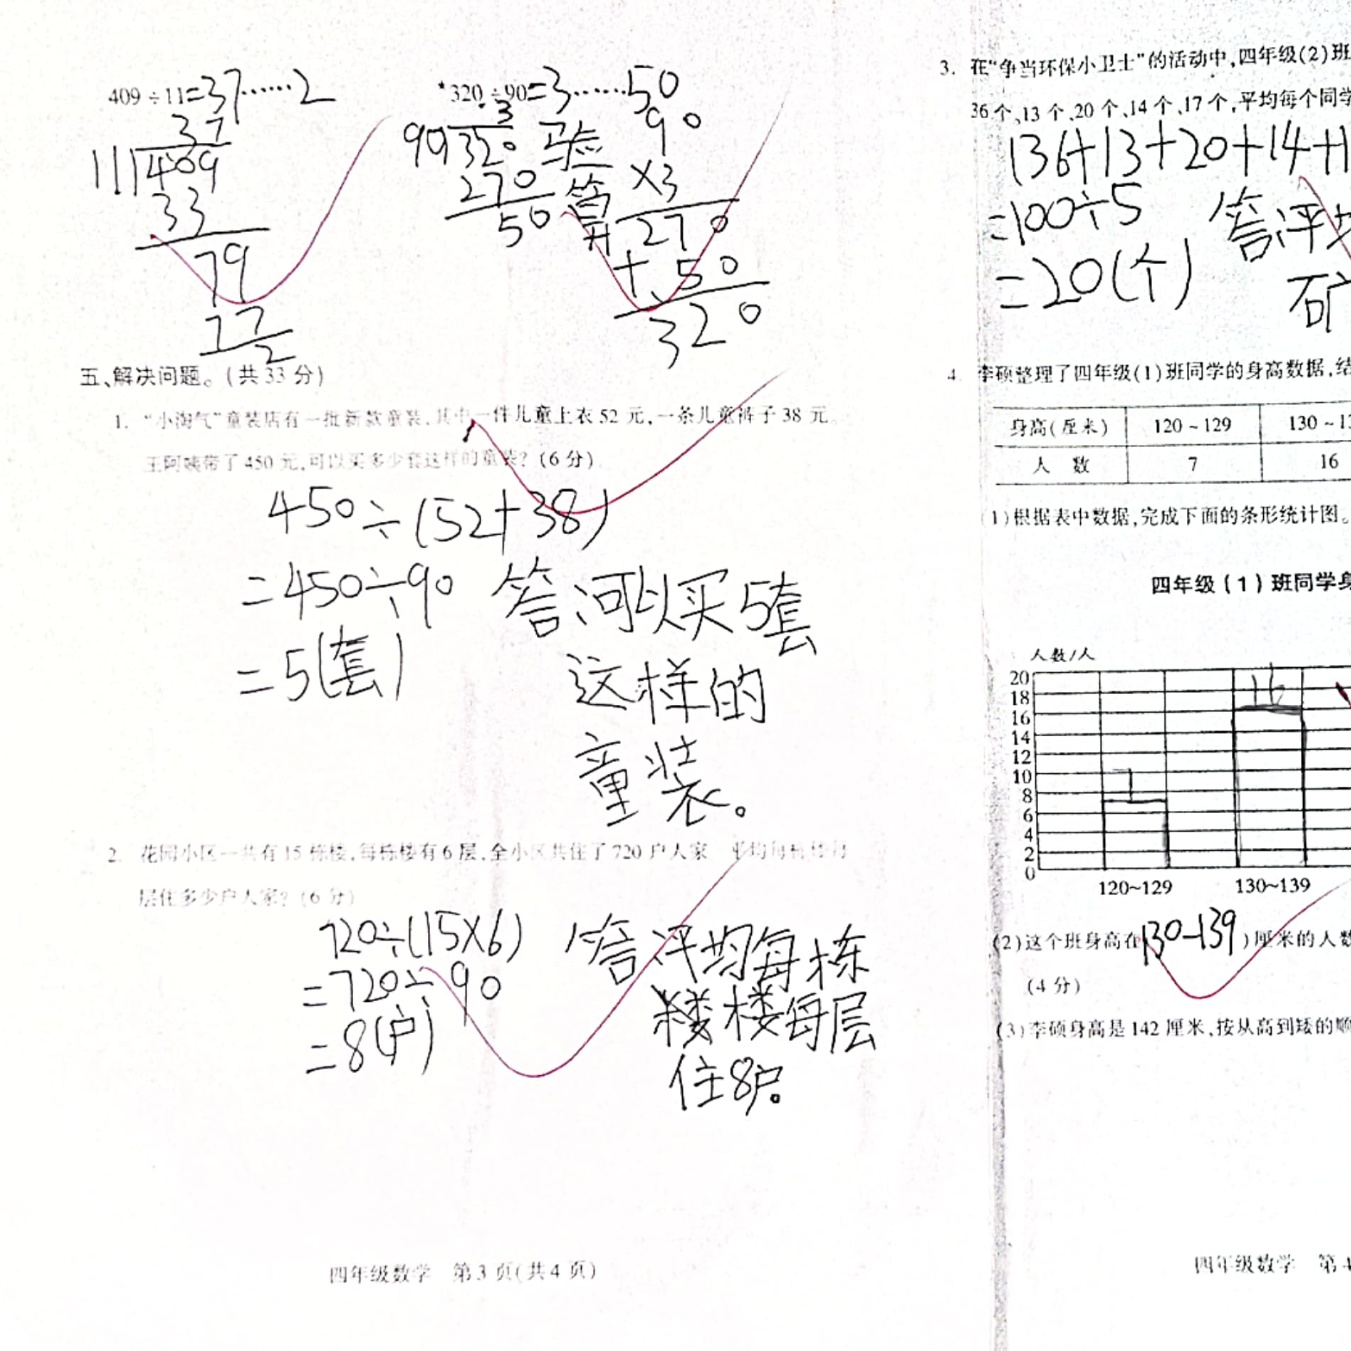 409÷11=37……2
37
11 409
33
79
77
2
*320÷90=3……50
3
90 320
270
50
验算
90
×3
270
+50
320
五、解决问题。(共33分)
1. “小淘气”童装店有一批新款童装,其中一件儿童上衣52元,一条儿童裤子38元。
王阿姨带了450元,可以买多少套这样的童装?(6分)
450÷(52+38)
=450÷90
=5(套)
答:可以买5套
这样的
童装。
2. 花园小区一共有15栋楼,每栋楼有6层,全小区共住了720户人家。平均每栋楼每
层住多少户人家?(6分)
720÷(15×6)
=720÷90
=8(户)
答:平均每栋
楼楼每层
住8户。
四年级数学 第3页(共4页)
3. 在“争当环保小卫士”的活动中,四年级(2)班
36个、13个、20个、14个、17个,平均每个同学
(36+13+20+14+1
=100÷5
=20(个)
答:平均
矿
4. 李硕整理了四年级(1)班同学的身高数据,结
身高(厘米) 120~129 130~13
人 数 7 16
(1)根据表中数据,完成下面的条形统计图。
四年级(1)班同学身
人数/人
20
18
16
14
12
10
8
6
4
2
0
16
7
120~129 130~139
(2)这个班身高在(130-139)厘米的人数
(4分)
(3)李硕身高是142厘米,按从高到矮的顺
四年级数学 第4